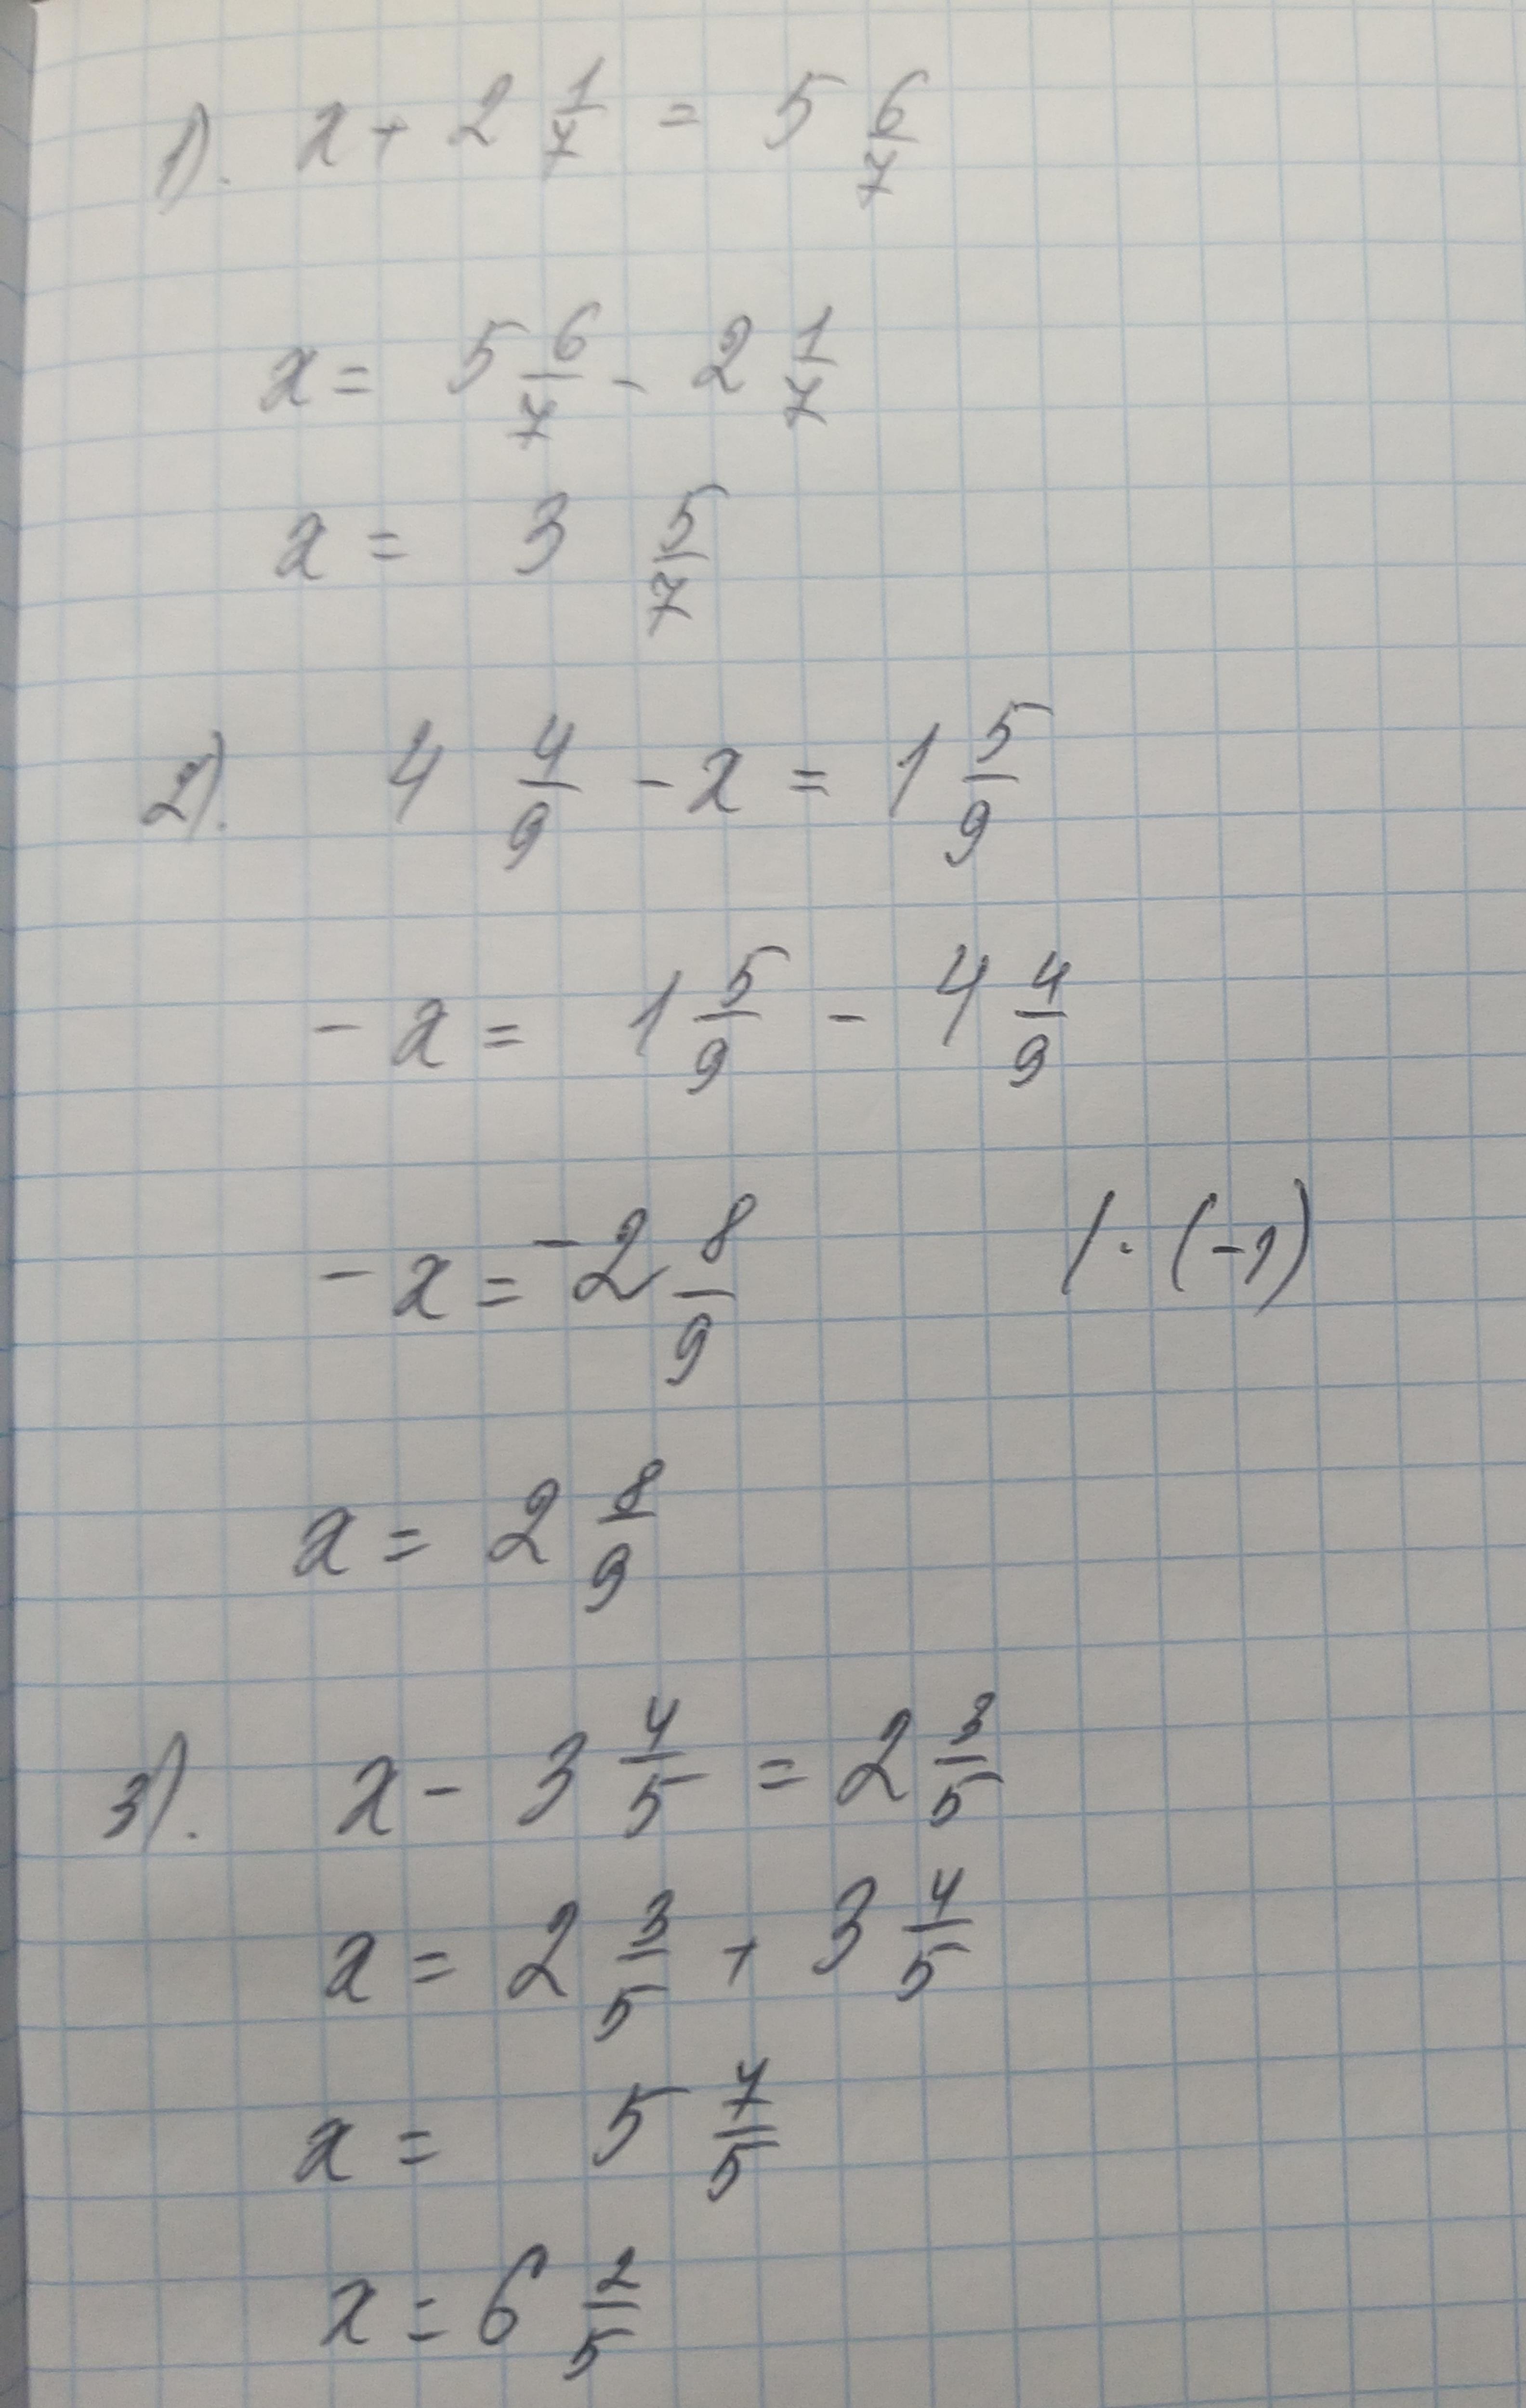 1). x + 2 1/7 = 5 6/7
x = 5 6/7 - 2 1/7
x = 3 5/7
2). 4 4/9 - x = 1 5/9
- x = 1 5/9 - 4 4/9
- x = -2 8/9 / · (-1)
x = 2 8/9
3). x - 3 4/5 = 2 3/5
x = 2 3/5 + 3 4/5
x = 5 7/5
x = 6 2/5